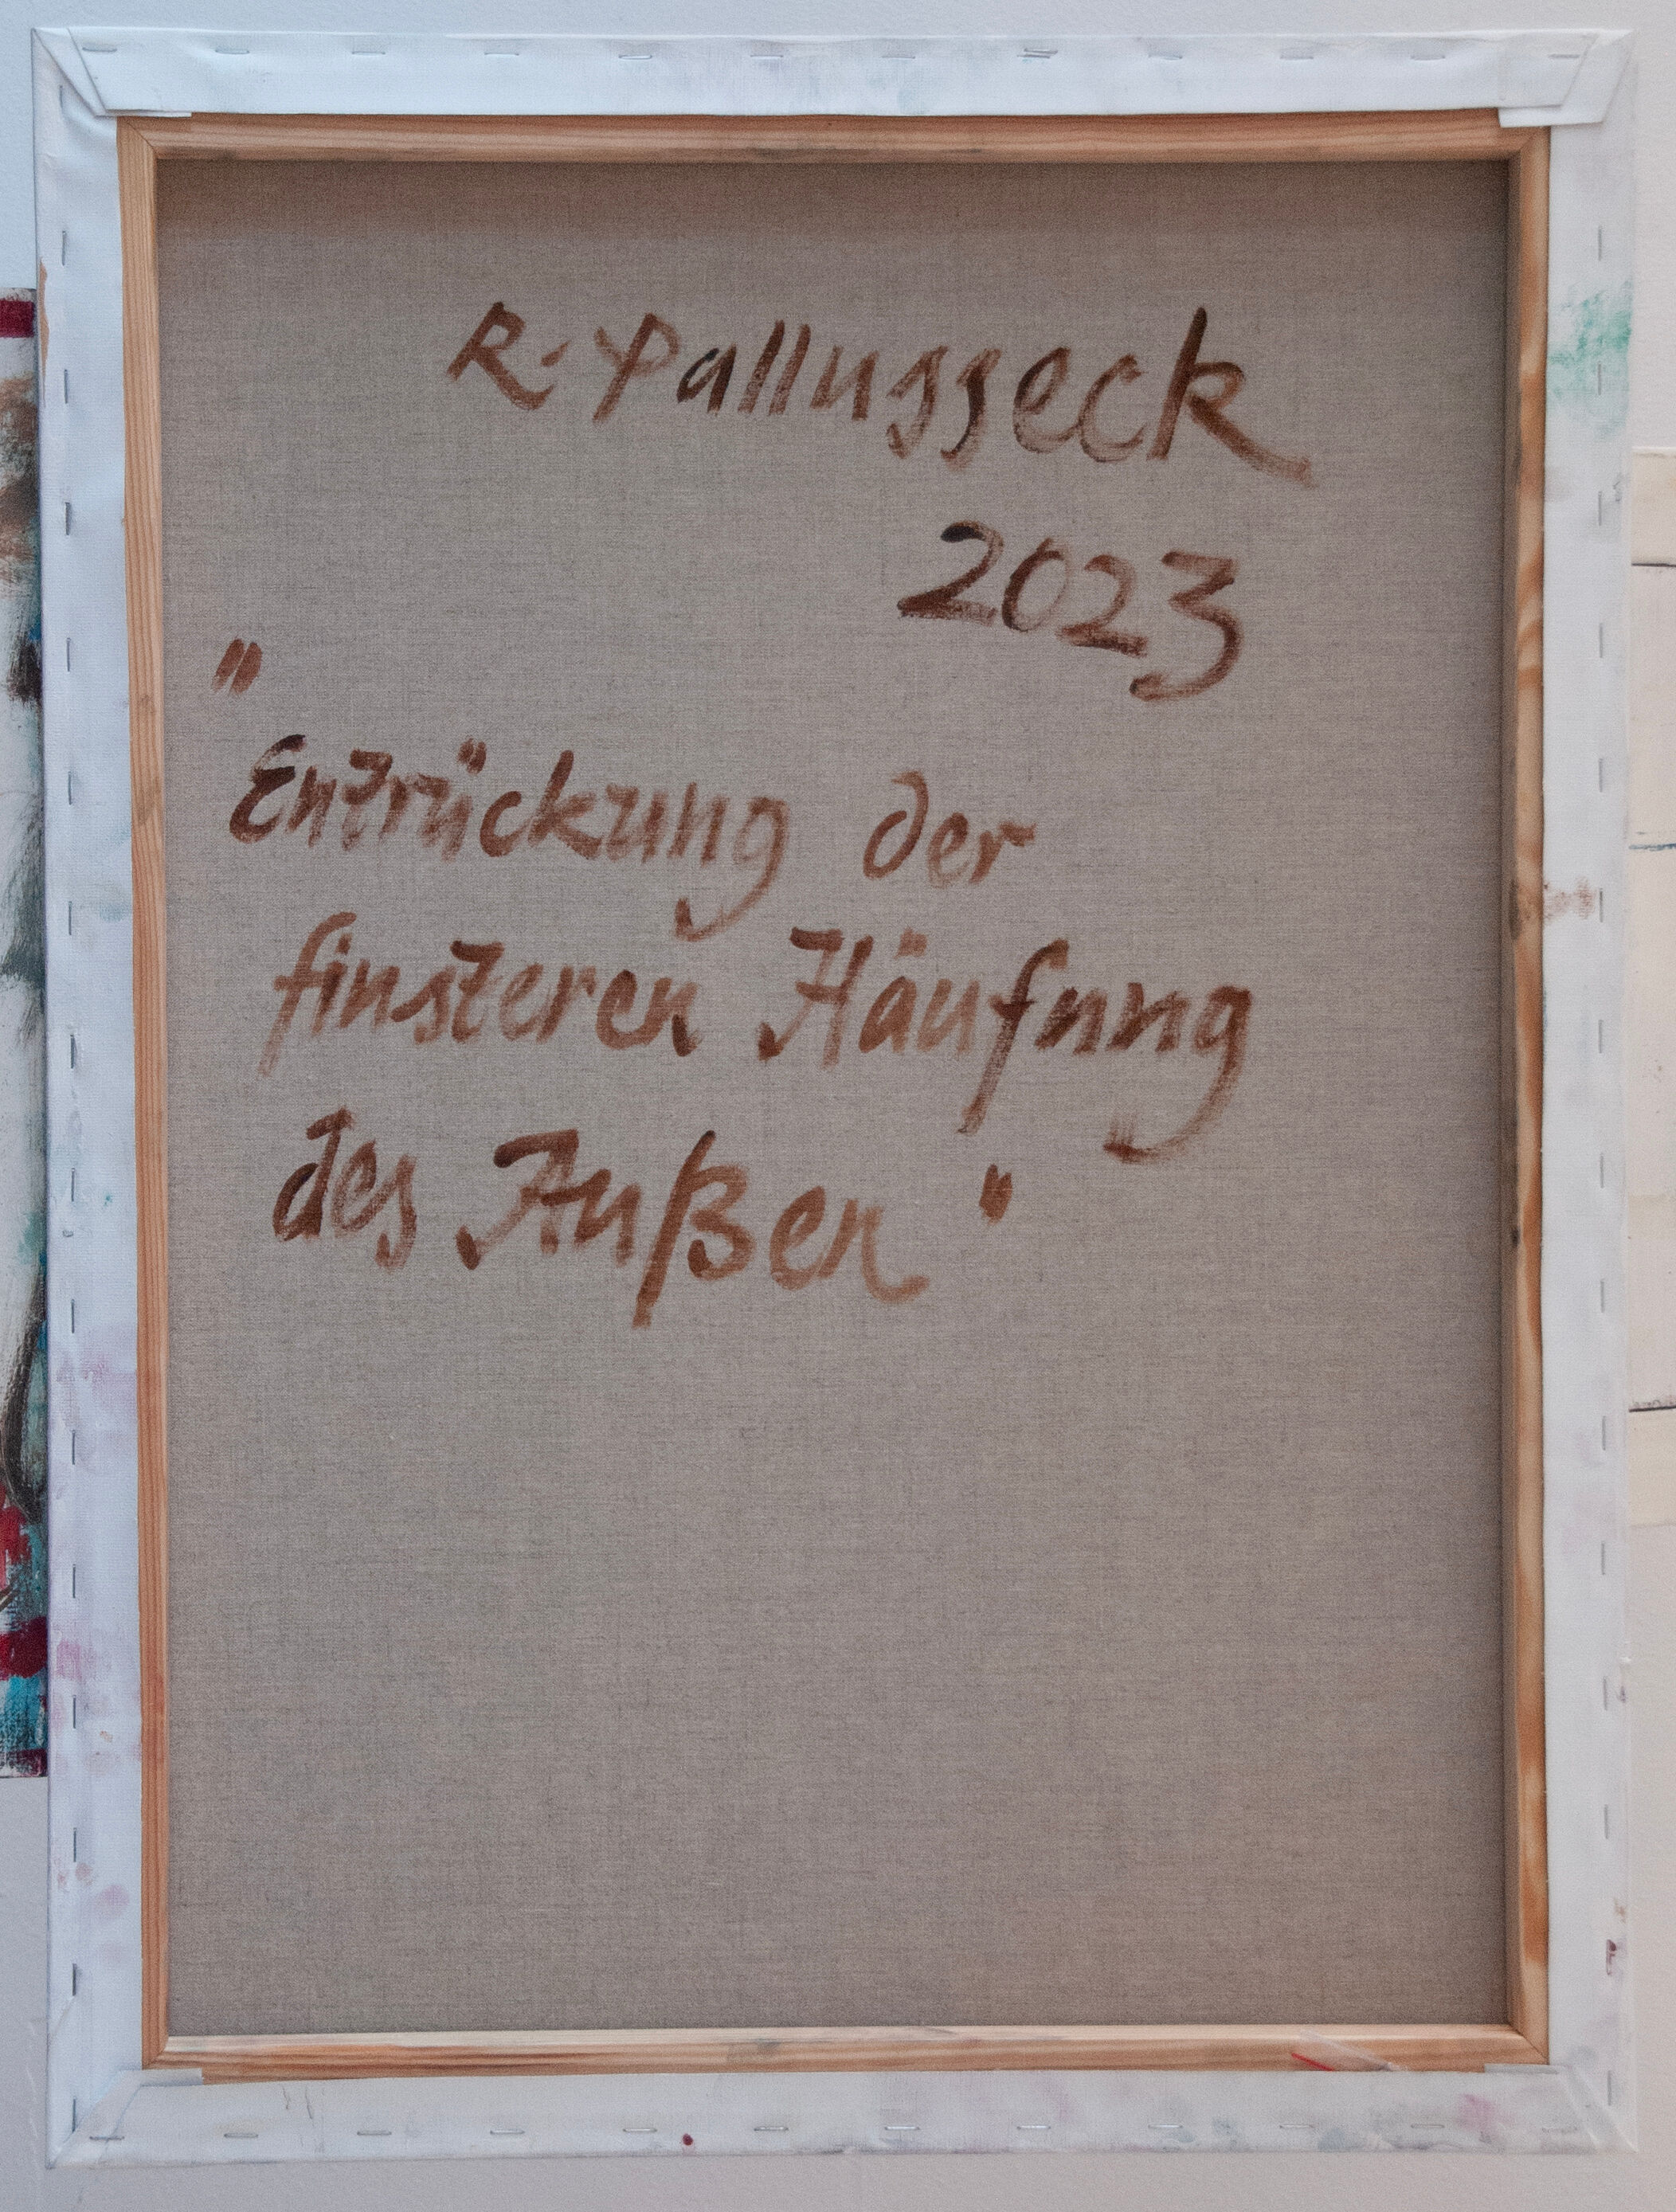 R. Pallusseck
2023
"
Entrückung der
finsteren Häufung
des Außen"